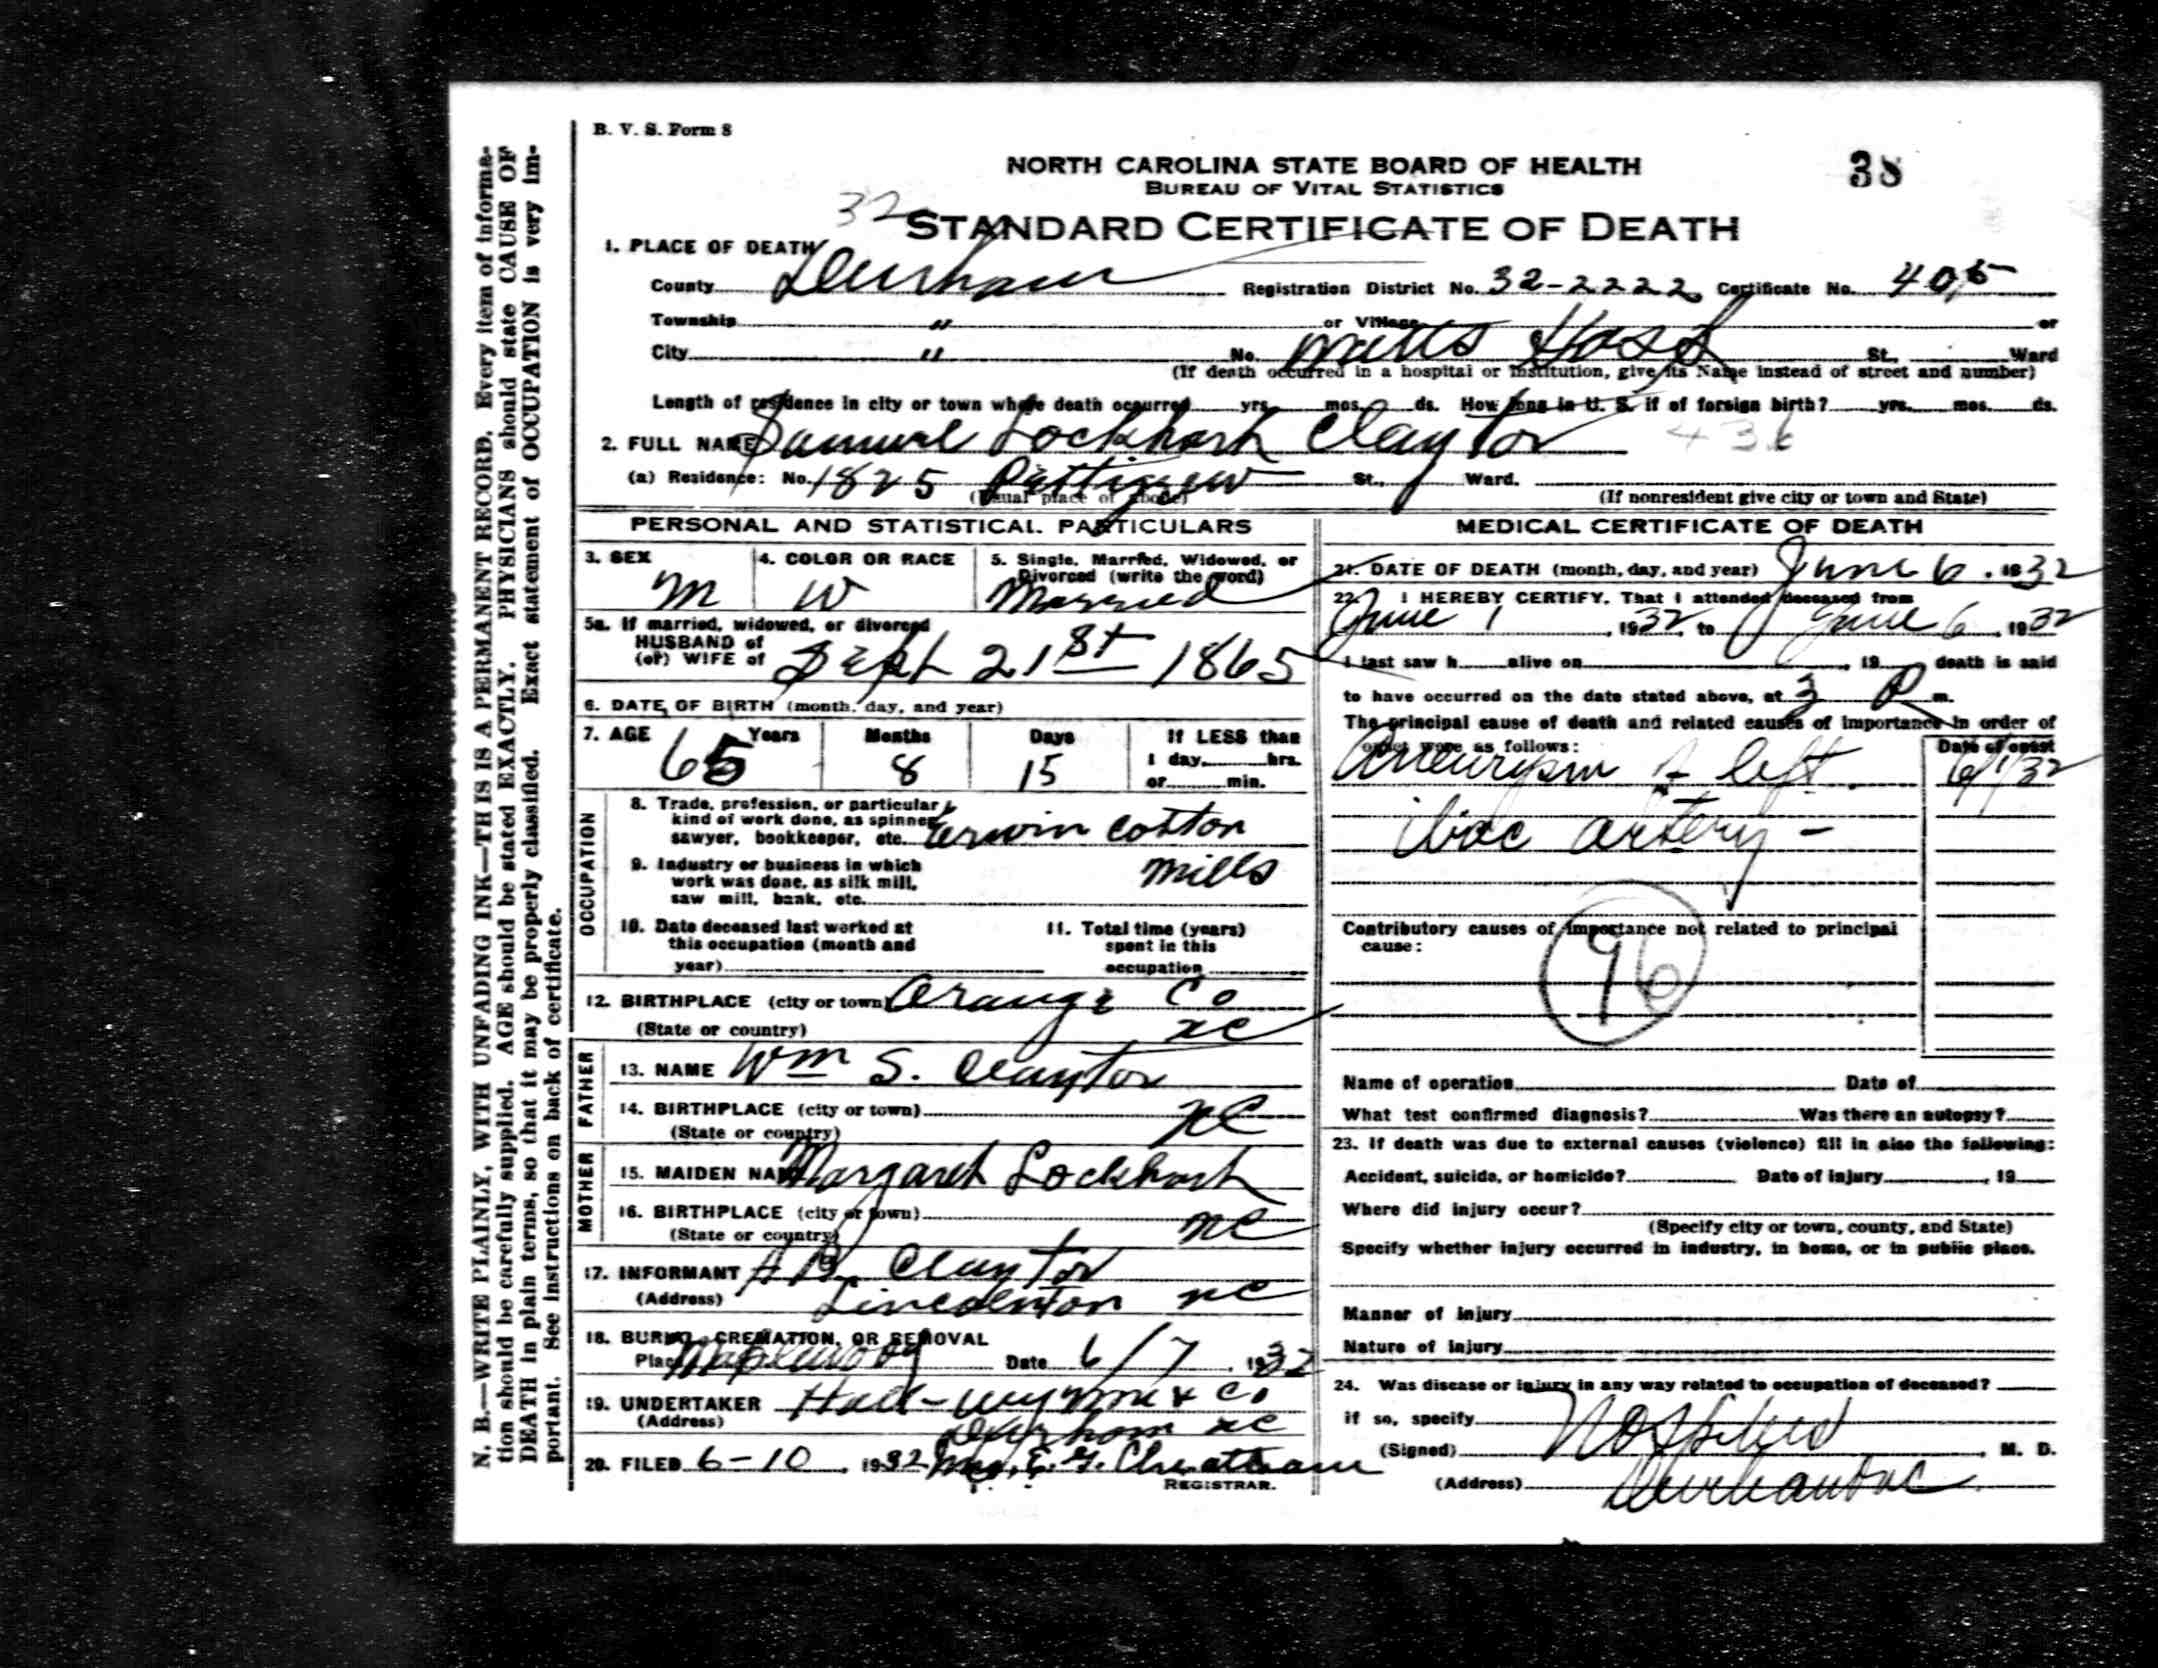 B. V. S. Form 8
NORTH CAROLINA STATE BOARD OF HEALTH
38
BUREAU OF VITAL STATISTICS
32
STANDARD CERTIFICATE OF DEATH
1. PLACE OF DEATH
County Durham Registration District No. 32-2222 Certificate No. 405
Township " or Village or
City " No. Watts Hosp St., Ward
(If death occurred in a hospital or institution, give its Name instead of street and number)
Length of residence in city or town where death occurred yrs. mos. ds. How long in U. S. if of foreign birth? yrs. mos. ds.
2. FULL NAME Samuel Lockhart Claytor 436
(a) Residence: No. 1825 Pettigrew St., Ward.
(Usual place of abode) (If nonresident give city or town and State)
PERSONAL AND STATISTICAL PARTICULARS
3. SEX 4. COLOR OR RACE 5. Single, Married, Widowed, or
Divorced (write the word)
M W Married
5a. If married, widowed, or divorced
HUSBAND of
(or) WIFE of Sept 21st 1865
6. DATE OF BIRTH (month, day, and year)
7. AGE Years Months Days If LESS than
65 8 15 1 day, hrs.
or min.
OCCUPATION
8. Trade, profession, or particular
kind of work done, as spinner,
sawyer, bookkeeper, etc. Erwin Cotton
9. Industry or business in which Mills
work was done, as silk mill,
saw mill, bank, etc.
10. Date deceased last worked at 11. Total time (years)
this occupation (month and spent in this
year) occupation
12. BIRTHPLACE (city or town) Orange Co
(State or country) NC
FATHER
13. NAME Wm S. Claytor
14. BIRTHPLACE (city or town) NC
(State or country)
MOTHER
15. MAIDEN NAME Margaret Lockhart
16. BIRTHPLACE (city or town) NC
(State or country)
17. INFORMANT A B. Claytor
(Address) Lincolnton NC
18. BURIAL, CREMATION, OR REMOVAL
Place Maplewood Date 6/7, 1932
19. UNDERTAKER Hall-Wynne & Co
(Address) Durham NC
20. FILED 6-10, 1932 Mrs. E. G. Cheatham
REGISTRAR.
MEDICAL CERTIFICATE OF DEATH
21. DATE OF DEATH (month, day, and year) June 6. 1932
22. I HEREBY CERTIFY, That I attended deceased from
June 1, 1932, to June 6, 1932
I last saw h alive on , 19 death is said
to have occurred on the date stated above, at 3 P m.
The principal cause of death and related causes of importance in order of
onset were as follows: Date of onset
Aneurysm of left 6/1/32
iliac artery -
Contributory causes of importance not related to principal
cause:
96
Name of operation Date of
What test confirmed diagnosis? Was there an autopsy?
23. If death was due to external causes (violence) fill in also the following:
Accident, suicide, or homicide? Date of injury , 19
Where did injury occur?
(Specify city or town, county, and State)
Specify whether injury occurred in industry, in home, or in public place.
Manner of injury
Nature of injury
24. Was disease or injury in any way related to occupation of deceased?
if so, specify
(Signed) , M. D.
(Address) Durham NC
N. B.—WRITE PLAINLY, WITH UNFADING INK—THIS IS A PERMANENT RECORD. Every item of informa-
tion should be carefully supplied. AGE should be stated EXACTLY. PHYSICIANS should state CAUSE OF
DEATH in plain terms, so that it may be properly classified. Exact statement of OCCUPATION is very im-
portant. See instructions on back of certificate.